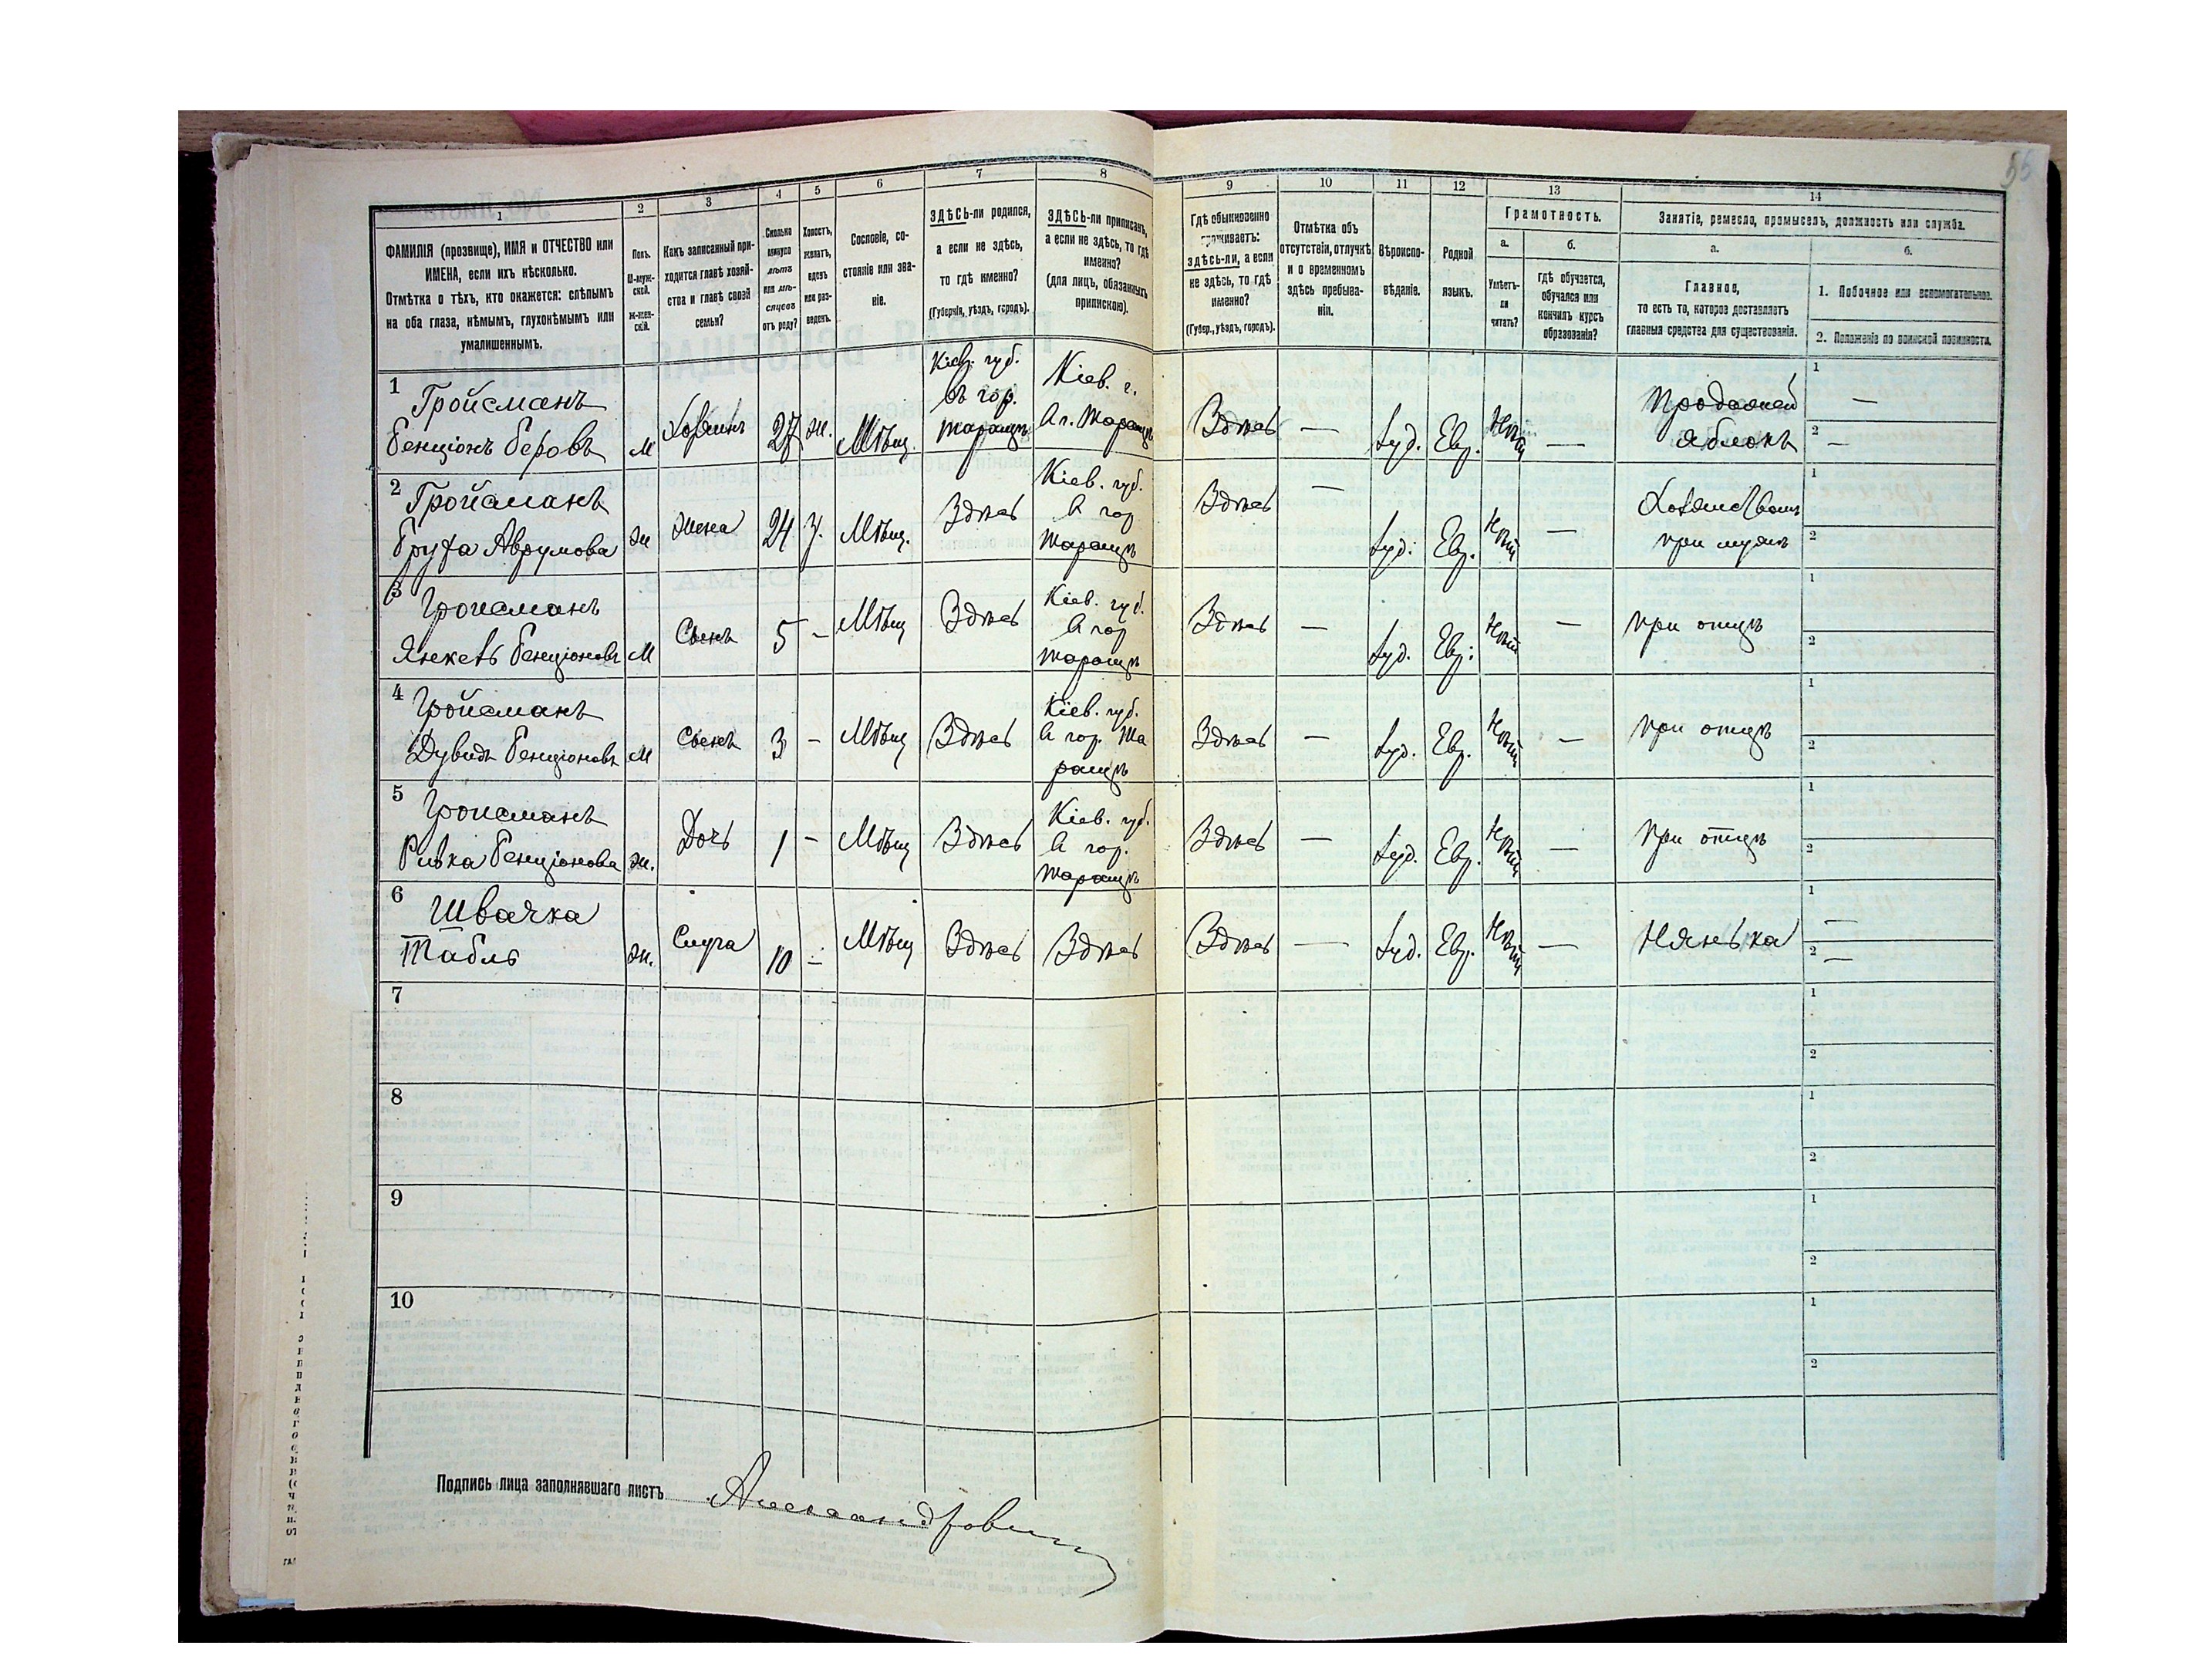 55
1
2
3
4
5
6
7
8
9
10
11
12
13
14
ФАМИЛІЯ (прозвище), ИМЯ и ОТЧЕСТВО или
ИМЕНА, если ихъ нѣсколько.
Отмѣтка о тѣхъ, кто окажется: слѣпымъ
на оба глаза, нѣмымъ, глухонѣмымъ или
умалишеннымъ.
Полъ.
М-муж-
ской.
Ж-жен-
скій.
Какъ записанный при-
ходится главѣ хозяй-
ства и главѣ своей
семьи?
Сколько
минуло
лѣтъ
или мѣ-
сяцевъ
отъ роду?
Холостъ,
женатъ,
вдовъ
или раз-
веденъ.
Сословіе, со-
стояніе или зва-
ніе.
ЗДѢСЬ-ли родился,
а если не здѣсь,
то гдѣ именно?
(Губернія, уѣздъ, городъ).
ЗДѢСЬ-ли приписанъ,
а если не здѣсь, то гдѣ
именно?
(для лицъ, обязанныхъ
припискою).
Гдѣ обыкновенно
проживаетъ:
здѣсь-ли, а если
не здѣсь, то гдѣ
именно?
(Губер., уѣздъ, городъ).
Отмѣтка объ
отсутствіи, отлучкѣ
и о временномъ
здѣсь пребыва-
ніи.
Вѣроиспо-
вѣданіе.
Родной
языкъ.
Грамотность.
а.
Умѣетъ-
ли
читать?
б.
гдѣ обучается,
обучался или
кончилъ курсъ
образованія?
Занятіе, ремесло, промыселъ, должность или служба.
а.
Главное,
то есть то, которое доставляетъ
главныя средства для существованія.
б.
1. Побочное или вспомогательное.
2. Положеніе по воинской повинности.
1 Гройсманъ
Бенціонъ Беровъ
М
Хозяинъ
27
ж.
Мѣщ.
Кіев. губ.
въ гор.
Таращѣ
Кіев. г.
в г. Таращѣ
Здѣсь
—
Іуд.
Евр.
Нѣтъ
—
Продажей
яблокъ
1 —
2 —
2 Гройсманъ
Бруха Аврумова
ж
Жена
24
з.
Мѣщ.
Здѣсь
Кіев. губ.
в гор
Таращѣ
Здѣсь
—
Іуд.
Евр.
Нѣтъ
—
Хозяйствомъ
при мужѣ
1
2
3 Гройсманъ
Янкель Бенціоновъ
М
Сынъ
5
—
Мѣщ
Здѣсь
Кіев. губ.
в гор
Таращѣ
Здѣсь
—
Іуд.
Евр.
Нѣтъ
—
При отцѣ
1
2
4 Гройсманъ
Дувидъ Бенціоновъ
М
Сынъ
3
—
Мѣщ
Здѣсь
Кіев. губ.
в гор. Та
ращѣ
Здѣсь
—
Іуд.
Евр.
Нѣтъ
—
При отцѣ
1
2
5 Гройсманъ
Ривка Бенціонова
ж.
Дочь
1
—
Мѣщ
Здѣсь
Кіев. губ.
в гор.
Таращѣ
Здѣсь
—
Іуд.
Евр.
Нѣтъ
—
При отцѣ
1
2
6 Швачка
Табль
ж.
Слуга
10
—
Мѣщ
Здѣсь
Здѣсь
Здѣсь
—
Іуд.
Евр.
Нѣтъ
—
Нянька
1 —
2 —
7
1
2
8
1
2
9
1
2
10
1
2
Подпись лица заполнявшаго листъ Александрович